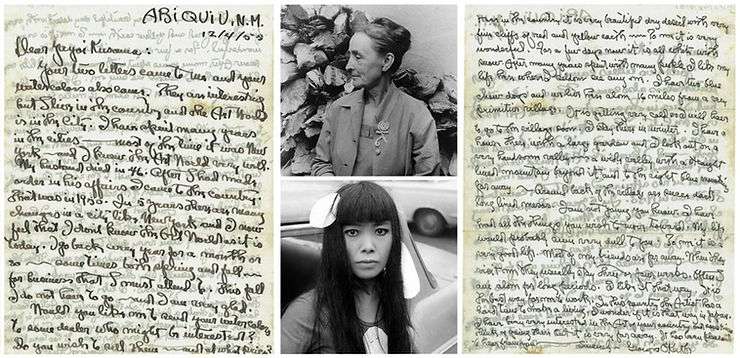 ABIQUIU, N.M.
12/4/55
Dear Yayoi Kusama :
Your two letters came to me and your
watercolors also came. They are interesting
but I live in the country and the Art World
is in the City. I have spent many years
in the cities — most of the time it was New
York — and I knew the Art World very well.
My husband died in 46. After I had made
order in his affairs I came to the country
that was in 1950. In 5 years there are many
changes in a city like New York and I now
feel that I dont know the Art World as it is
today. I go back every year for a month or
so — sometimes both spring and fall —
for business that I must attend to. This fall
I do not have to go — and I am very glad.
Would you like me to send your watercolors
to some dealer who might be interested?
Do you wish to sell them — and at what price?
in this country it is very beautiful dry desert with very
fine cliffs of red and yellow earth — To me it is very
wonderful. For a few days now it is all white with
snow after many years with many people I like my
life here where seldom see any one. I have two blue
chow dogs and we live here alone 16 miles from a very
primitive village. It is getting very cold so I will have
to go to the village soon. I stay there in winter. I have a
house there with a large garden and I look out on a
very handsome valley — a wide valley with a straight
lined mountain beyond it and to the right blue mountains
far away — Around back of the
lined mesas. I am not young you know. I have
had all the things you wish to turn toward. My life
would probably seem very dull to you. To me it is a
very good life. Most of my friends are far away. When they
visit me they usually stay three or four weeks. Often I
am alone for long periods. I like it that way. It is
the best way for me to work. In this country the Artist has a
hard time to make a living. I wonder if it is that way in Japan.
I have very interested in the Art of your country and